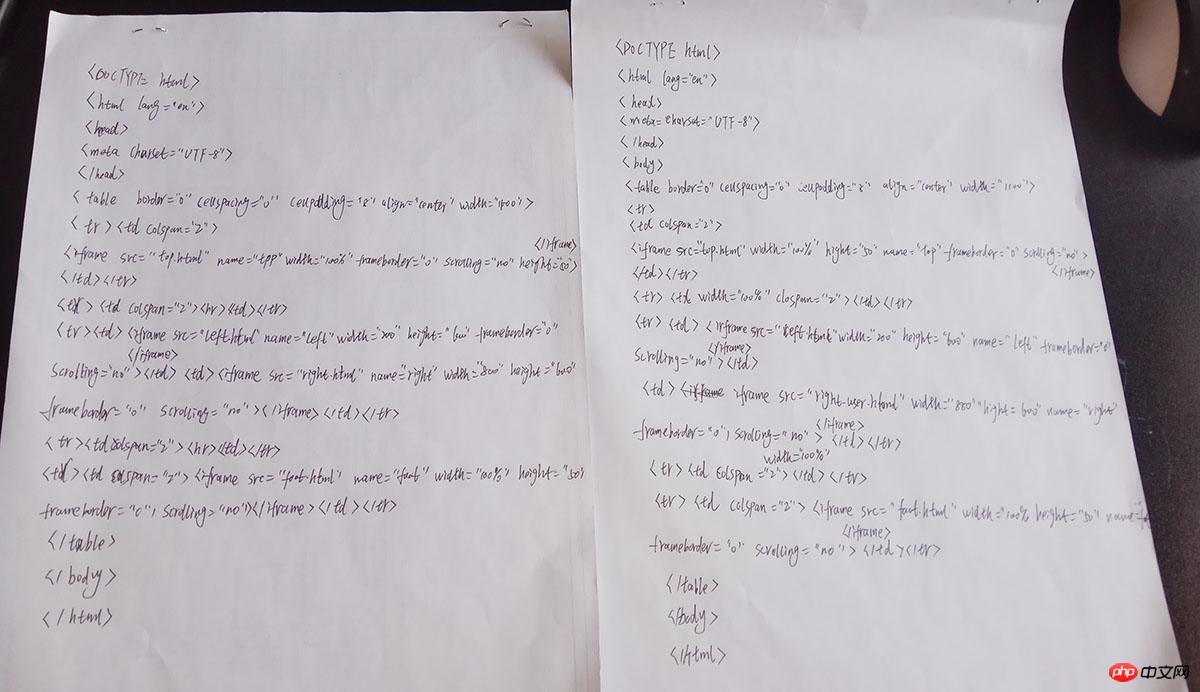 <DOCTYPE html>
<html lang="en">
<head>
<meta charset="UTF-8">
</head>
<table border="0" cellspacing="0" cellpadding="8" align="center" width="1500">
<tr><td colspan="2">
</iframe>
<iframe src="top.html" name="top" width="100%" frameborder="0" scrolling="no" height="50">
</td></tr>
<tr><td colspan="2"><hr><td></tr>
<tr><td><iframe src="left.html" name="left" width="200" height="600" frameborder="0"
</iframe>
scrolling="no"></td> <td><iframe src="right-html" name="right" width="800" height="600"
frameborder="0" scrolling="no"></iframe></td></tr>
<tr><td colspan="2"><hr><td></tr>
<td><td colspan="2"><iframe src="foot-html" name="foot" width="100%" height="50"
frameborder="0", scrolling="no"></iframe></td></tr>
</table>
</body>
</html>
<DOCTYPE html>
<html lang="en">
<head>
<meta=charset="UTF-8">
</head>
<body>
<table border="0" cellspacing="0" cellpadding="8" align="center" width="1100">
<tr>
<td colspan="2">
<iframe src="top.html" width="100%" hight="50" name="top" frameborder="0" scrolling="no">
</iframe>
</td></tr>
<tr><td width="100%" clospan="2"></td></tr>
<tr><td><iframe src="left-html" width="200" height="600" name="left" frameborder="0"
</iframe>
scrolling="no"></td>
<td>< iframe src="right-user.html" width="880" hight=600" name="right"
</iframe>
frameborder="0", scrolling="no"> </td></tr>
width="100%"
<tr><td colspan="2"></td></tr>
<tr><td colspan="2"><iframe src="foot.html" width="100% height="50"
</iframe>
frameborder="0" scrolling="no"></td></tr>
</table>
</body>
</html>
php 中文网